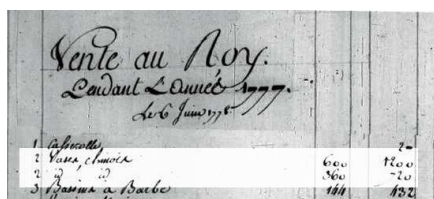 Vente au Roy.
Pendant L'année 1777.
Le 6 Juin 1778
1 Casserolle 2-
2 Vases chinois 600 1200
2 id id 360 720
3 Bassins a Barbe 144 432